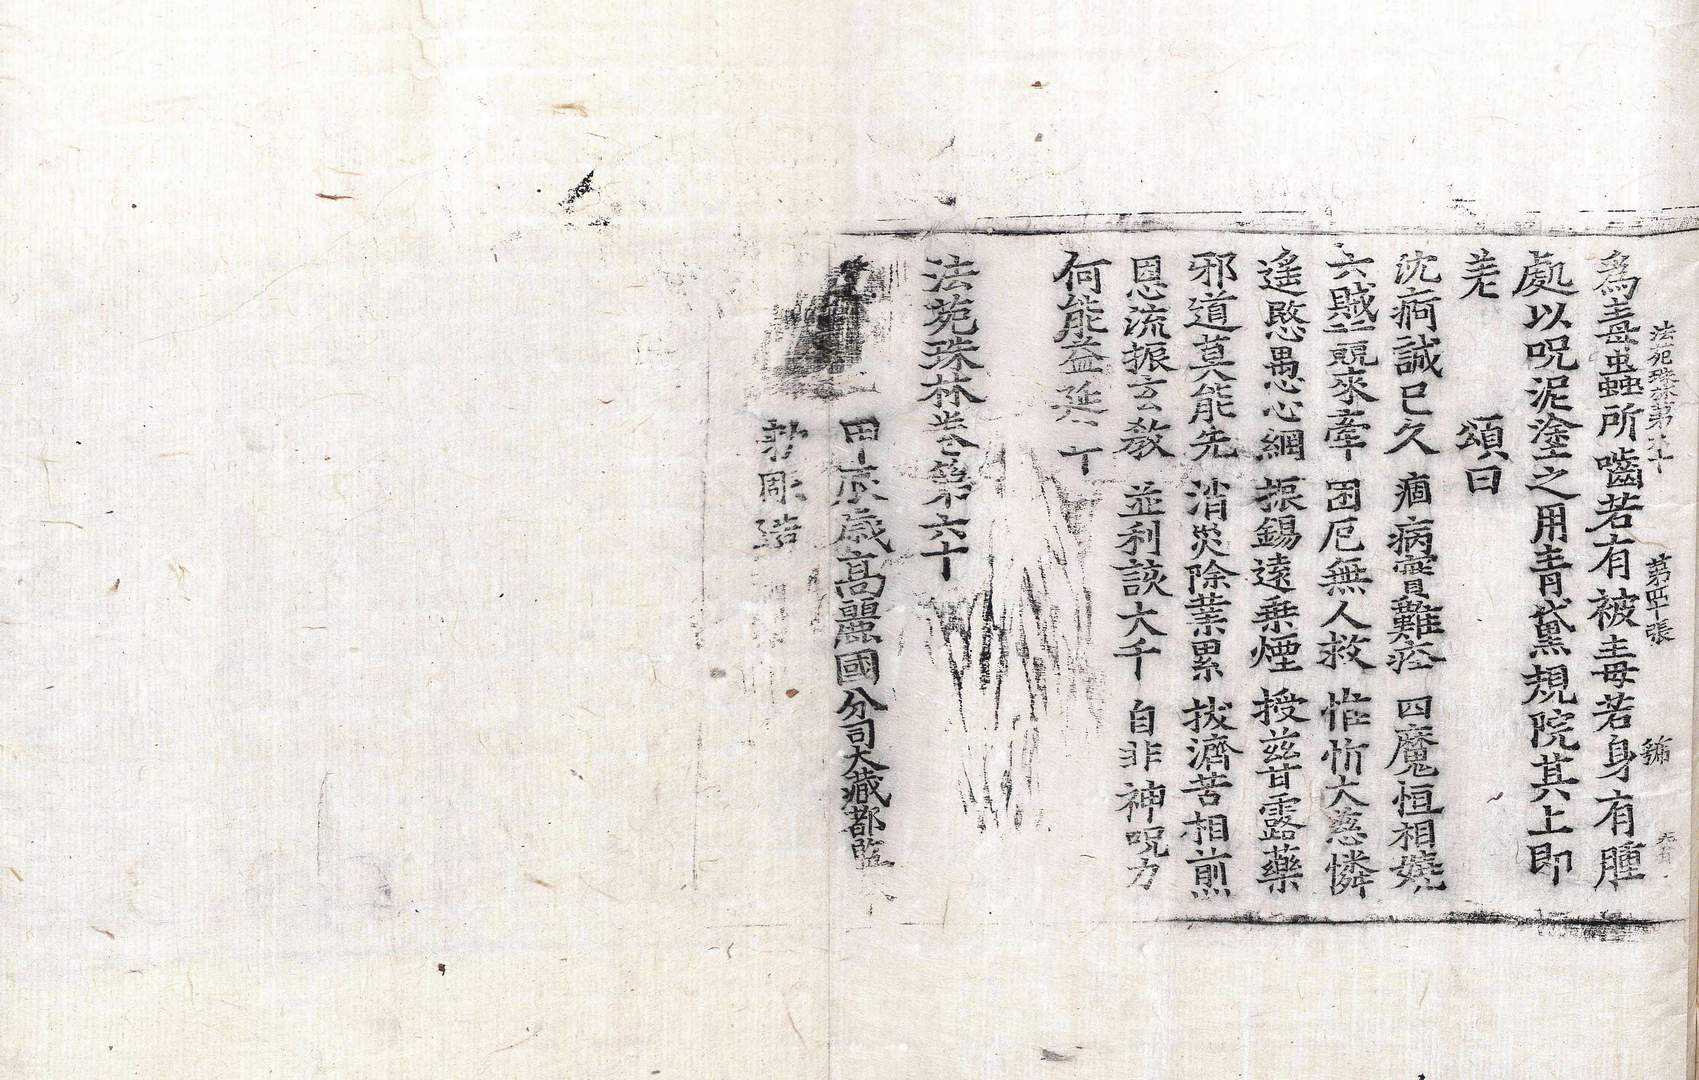 法苑珠林第六十 第四十張 鏽
為毒虫蠚所嚙若有被毒若身有腫
處以呪泥塗之用青黛規院其上即
差
頌曰
沈痾誠已久 痼病實難痊 四魔恒相嬈
六賊競來牽 困厄無人救 惟忻大慈憐
遙愍愚心網 振錫遠乗煙 授茲甘露藥
邪道莫能先 消災除業累 拔濟苦相煎
恩流振玄教 並利該大千 自非神呪力
何能益延
法苑珠林卷第六十
甲辰歳高麗國分司大藏都監
勅彫造